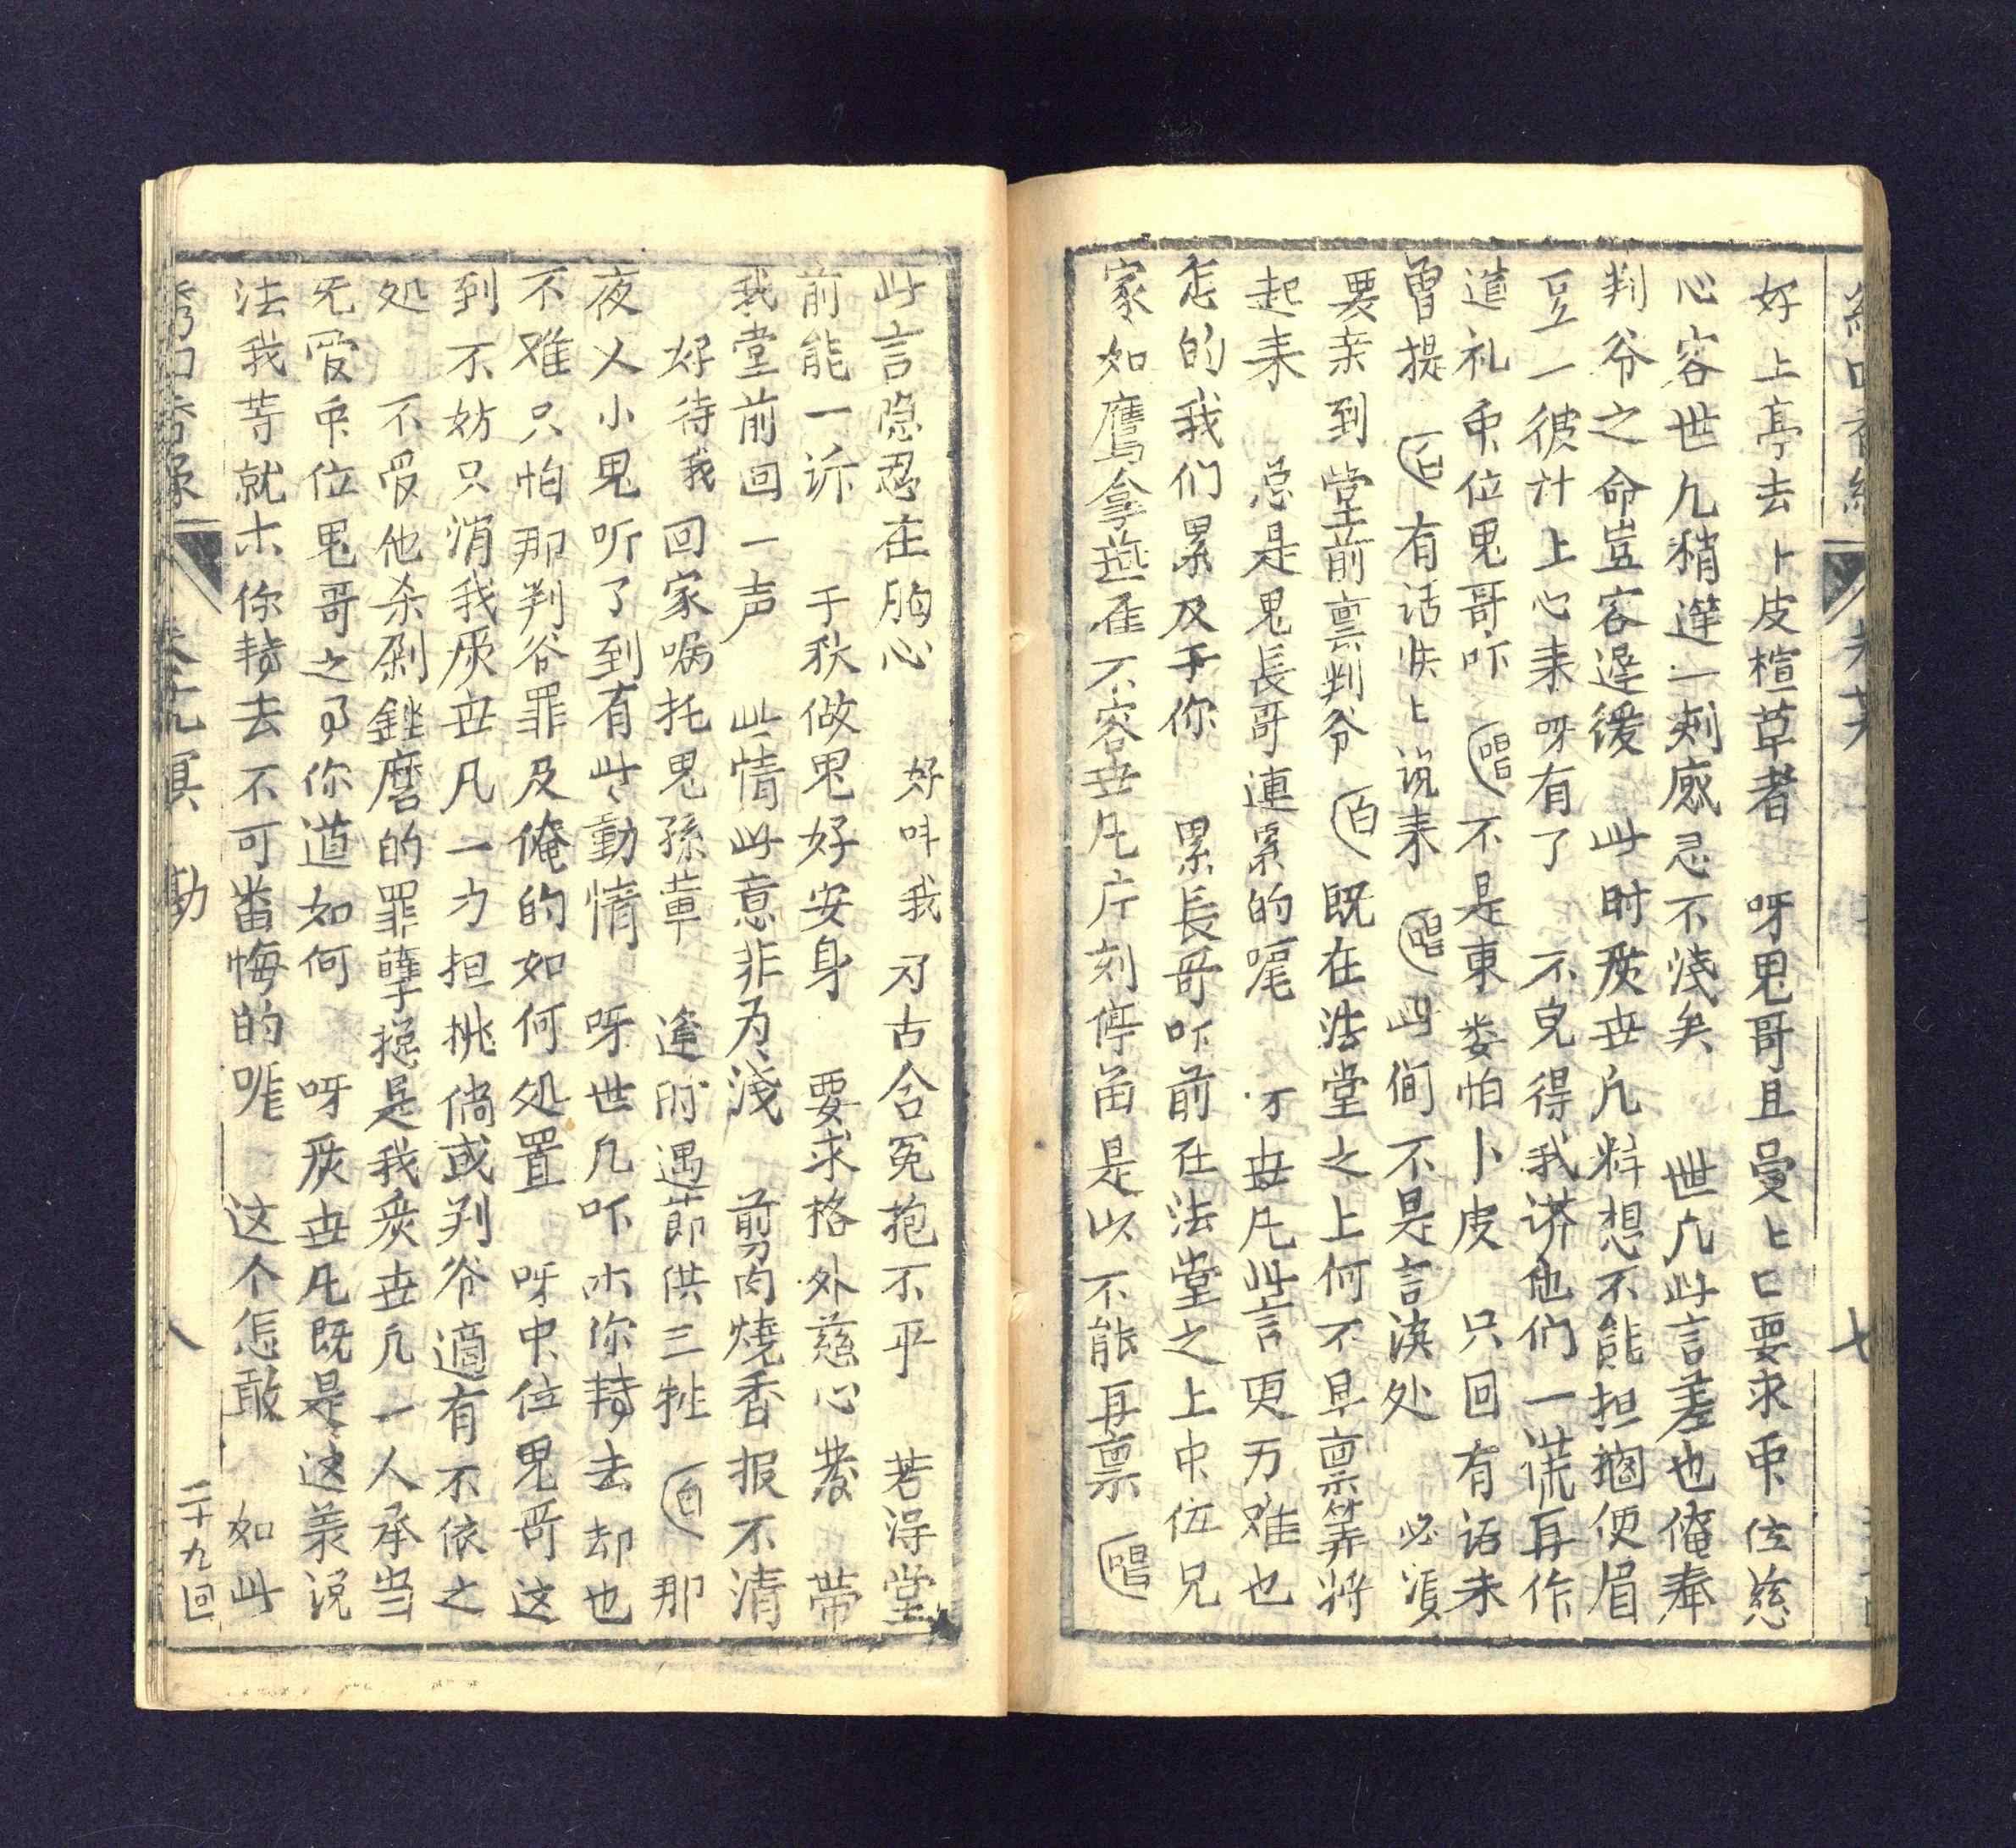 好上亭去卜皮楦草者 呀鬼哥且曼〻口要求中位慈
心容世凢稍遅一刻感忌不浅矣 世凢此言差也俺奉
判爷之命豈容遅缓 此时庋世凢料想不能担搁便眉
豆一彼计上心来呀有了 不免得我漭他们一谎再作
道礼中位鬼哥吓 唱 不是東娄怕卜皮 只回有话未
曽提 白 有话快〻说来 唱 此间不是言决处 必湏
要亲到堂前禀判爷 白 既在法堂之上何不早禀筭将
起来 总是鬼長哥連累的嚜 才世凢此言更万难也
怎的我们累及于你 累長哥吓前在法堂之上中位兄
家如鹰拿燕雀不容世凢片刻停畄是以不能再禀 唱
此言隐忍在胸心 好呌我 才古含冤抱不平 若淂堂
前能一诉 于秋做鬼好安身 要求格外慈心𤼵 带
我堂前回一声 此情此意非为淺 剪肉燒香报不清
好待我 回家嘱托鬼孫軰 逢时遇莭供三牲 白 那
夜乂小鬼听了到有此動情 呀世凢吓木你转去却也
不难只怕那判爷罪及俺的如何处置 呀中位鬼哥这
到不妨只消我庋世凡一力担挑倘或判爷適有不依之
処 不受他杀剐銼磨的罪孽摠是我庋世凢一人承当
旡受中位鬼哥之事你道如何 呀庋世凡既是这羕说
法我等就木你转去不可畨悔的嚛 这个怎敢 如此
二十九回